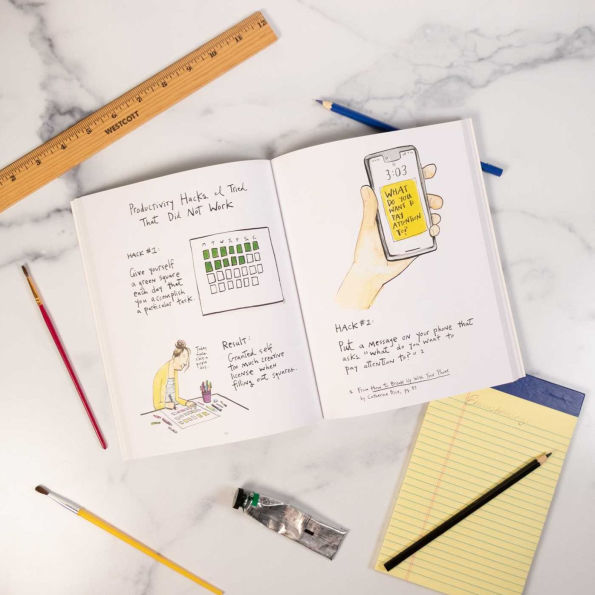 WESTCOTT
Productivity Hacks I Tried
That Did Not Work
HACK #1:
Give yourself
a green square
each day that
you accomplish
a particular task.
M T W T F S S
Result:
Granted self
too much creative
license when
filling out squares.
3:03
WHAT
DO YOU
WANT TO
PAY
ATTENTION
TO?
HACK #2:
Put a message on your phone that
asks "what do you want to
pay attention to?" 1
1 From How to Break Up With Your Phone
by Catherine Price, pg.